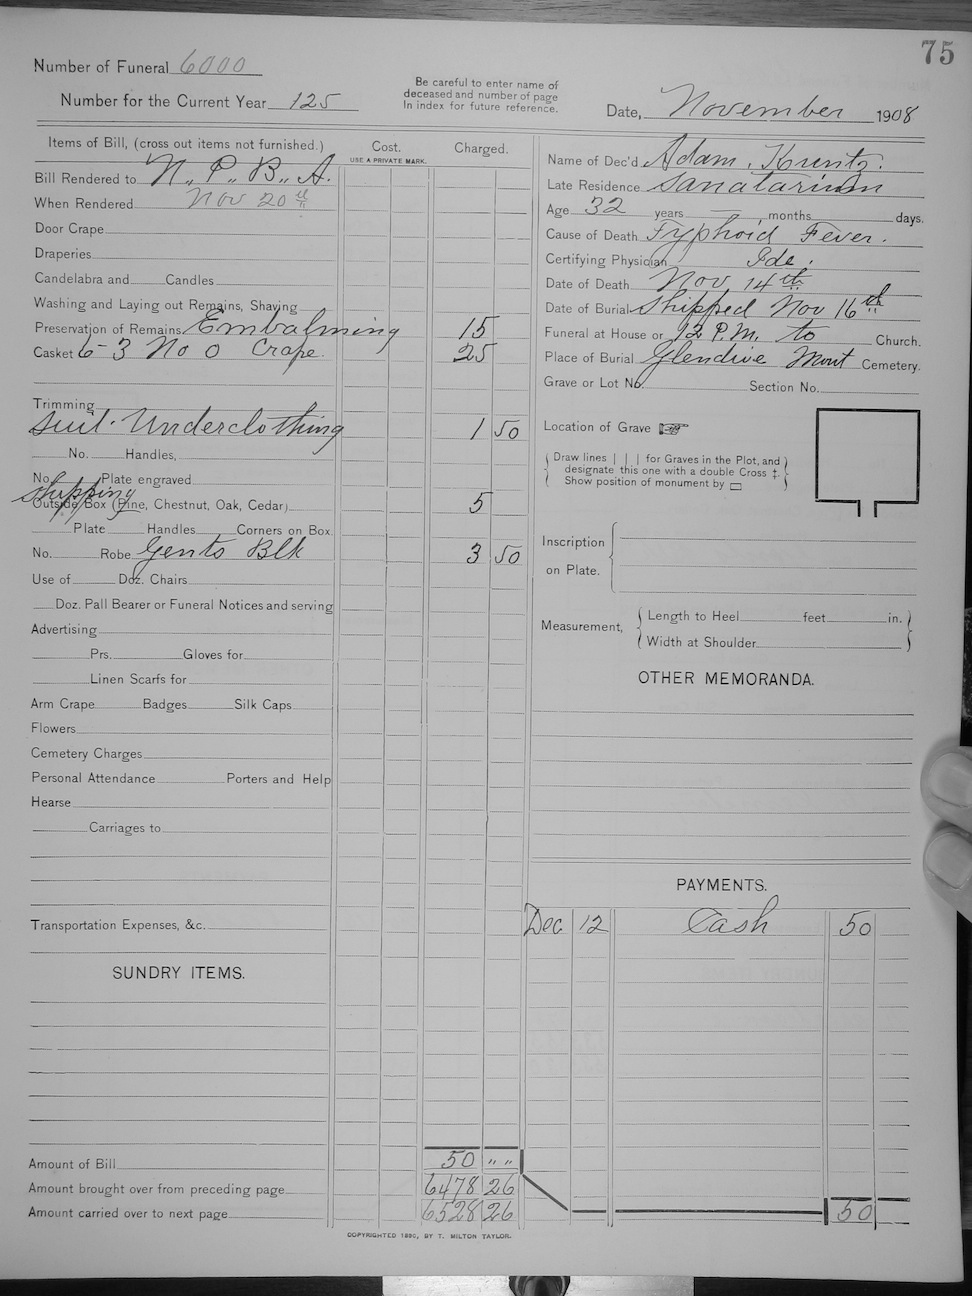 75
Number of Funeral 6000
Number for the Current Year 125
Be careful to enter name of
deceased and number of page
In index for future reference.
Date, November 1908
Items of Bill, (cross out items not furnished.) Cost. Charged.
USE A PRIVATE MARK.
Bill Rendered to N. P. B. A.
When Rendered Nov 20th
Door Crape
Draperies
Candelabra and Candles
Washing and Laying out Remains, Shaving
Preservation of Remains Embalming 15
Casket 6-3 No 0 Crape. 25
Trimming
Suit. Underclothing 1 50
No. Handles,
No. Plate engraved
Shipping
Outside Box (Pine, Chestnut, Oak, Cedar) 5
Plate Handles Corners on Box
No. Robe Gents Blk 3 50
Use of Doz. Chairs
Doz. Pall Bearer or Funeral Notices and serving
Advertising
Prs. Gloves for
Linen Scarfs for
Arm Crape Badges Silk Caps
Flowers
Cemetery Charges
Personal Attendance Porters and Help
Hearse
Carriages to
Transportation Expenses, &c.
SUNDRY ITEMS.
Amount of Bill 50 " "
Amount brought over from preceding page 6478 26
Amount carried over to next page 6528 26
Name of Dec'd Adam Kuntz.
Late Residence Sanatarium
Age 32 years — , months days.
Cause of Death Typhoid Fever.
Certifying Physician Ide.
Date of Death Nov 14th
Date of Burial Shipped Nov 16th
Funeral at House or 12 P.M. to Church.
Place of Burial Glendive Mont Cemetery.
Grave or Lot No. Section No.
Location of Grave
Draw lines | | | for Graves in the Plot, and
designate this one with a double Cross ‡.
Show position of monument by ▭
Inscription
on Plate.
Measurement, Length to Heel feet in.
Width at Shoulder
OTHER MEMORANDA.
PAYMENTS.
Dec 12 Cash 50
50
COPYRIGHTED 1890, BY T. MILTON TAYLOR.